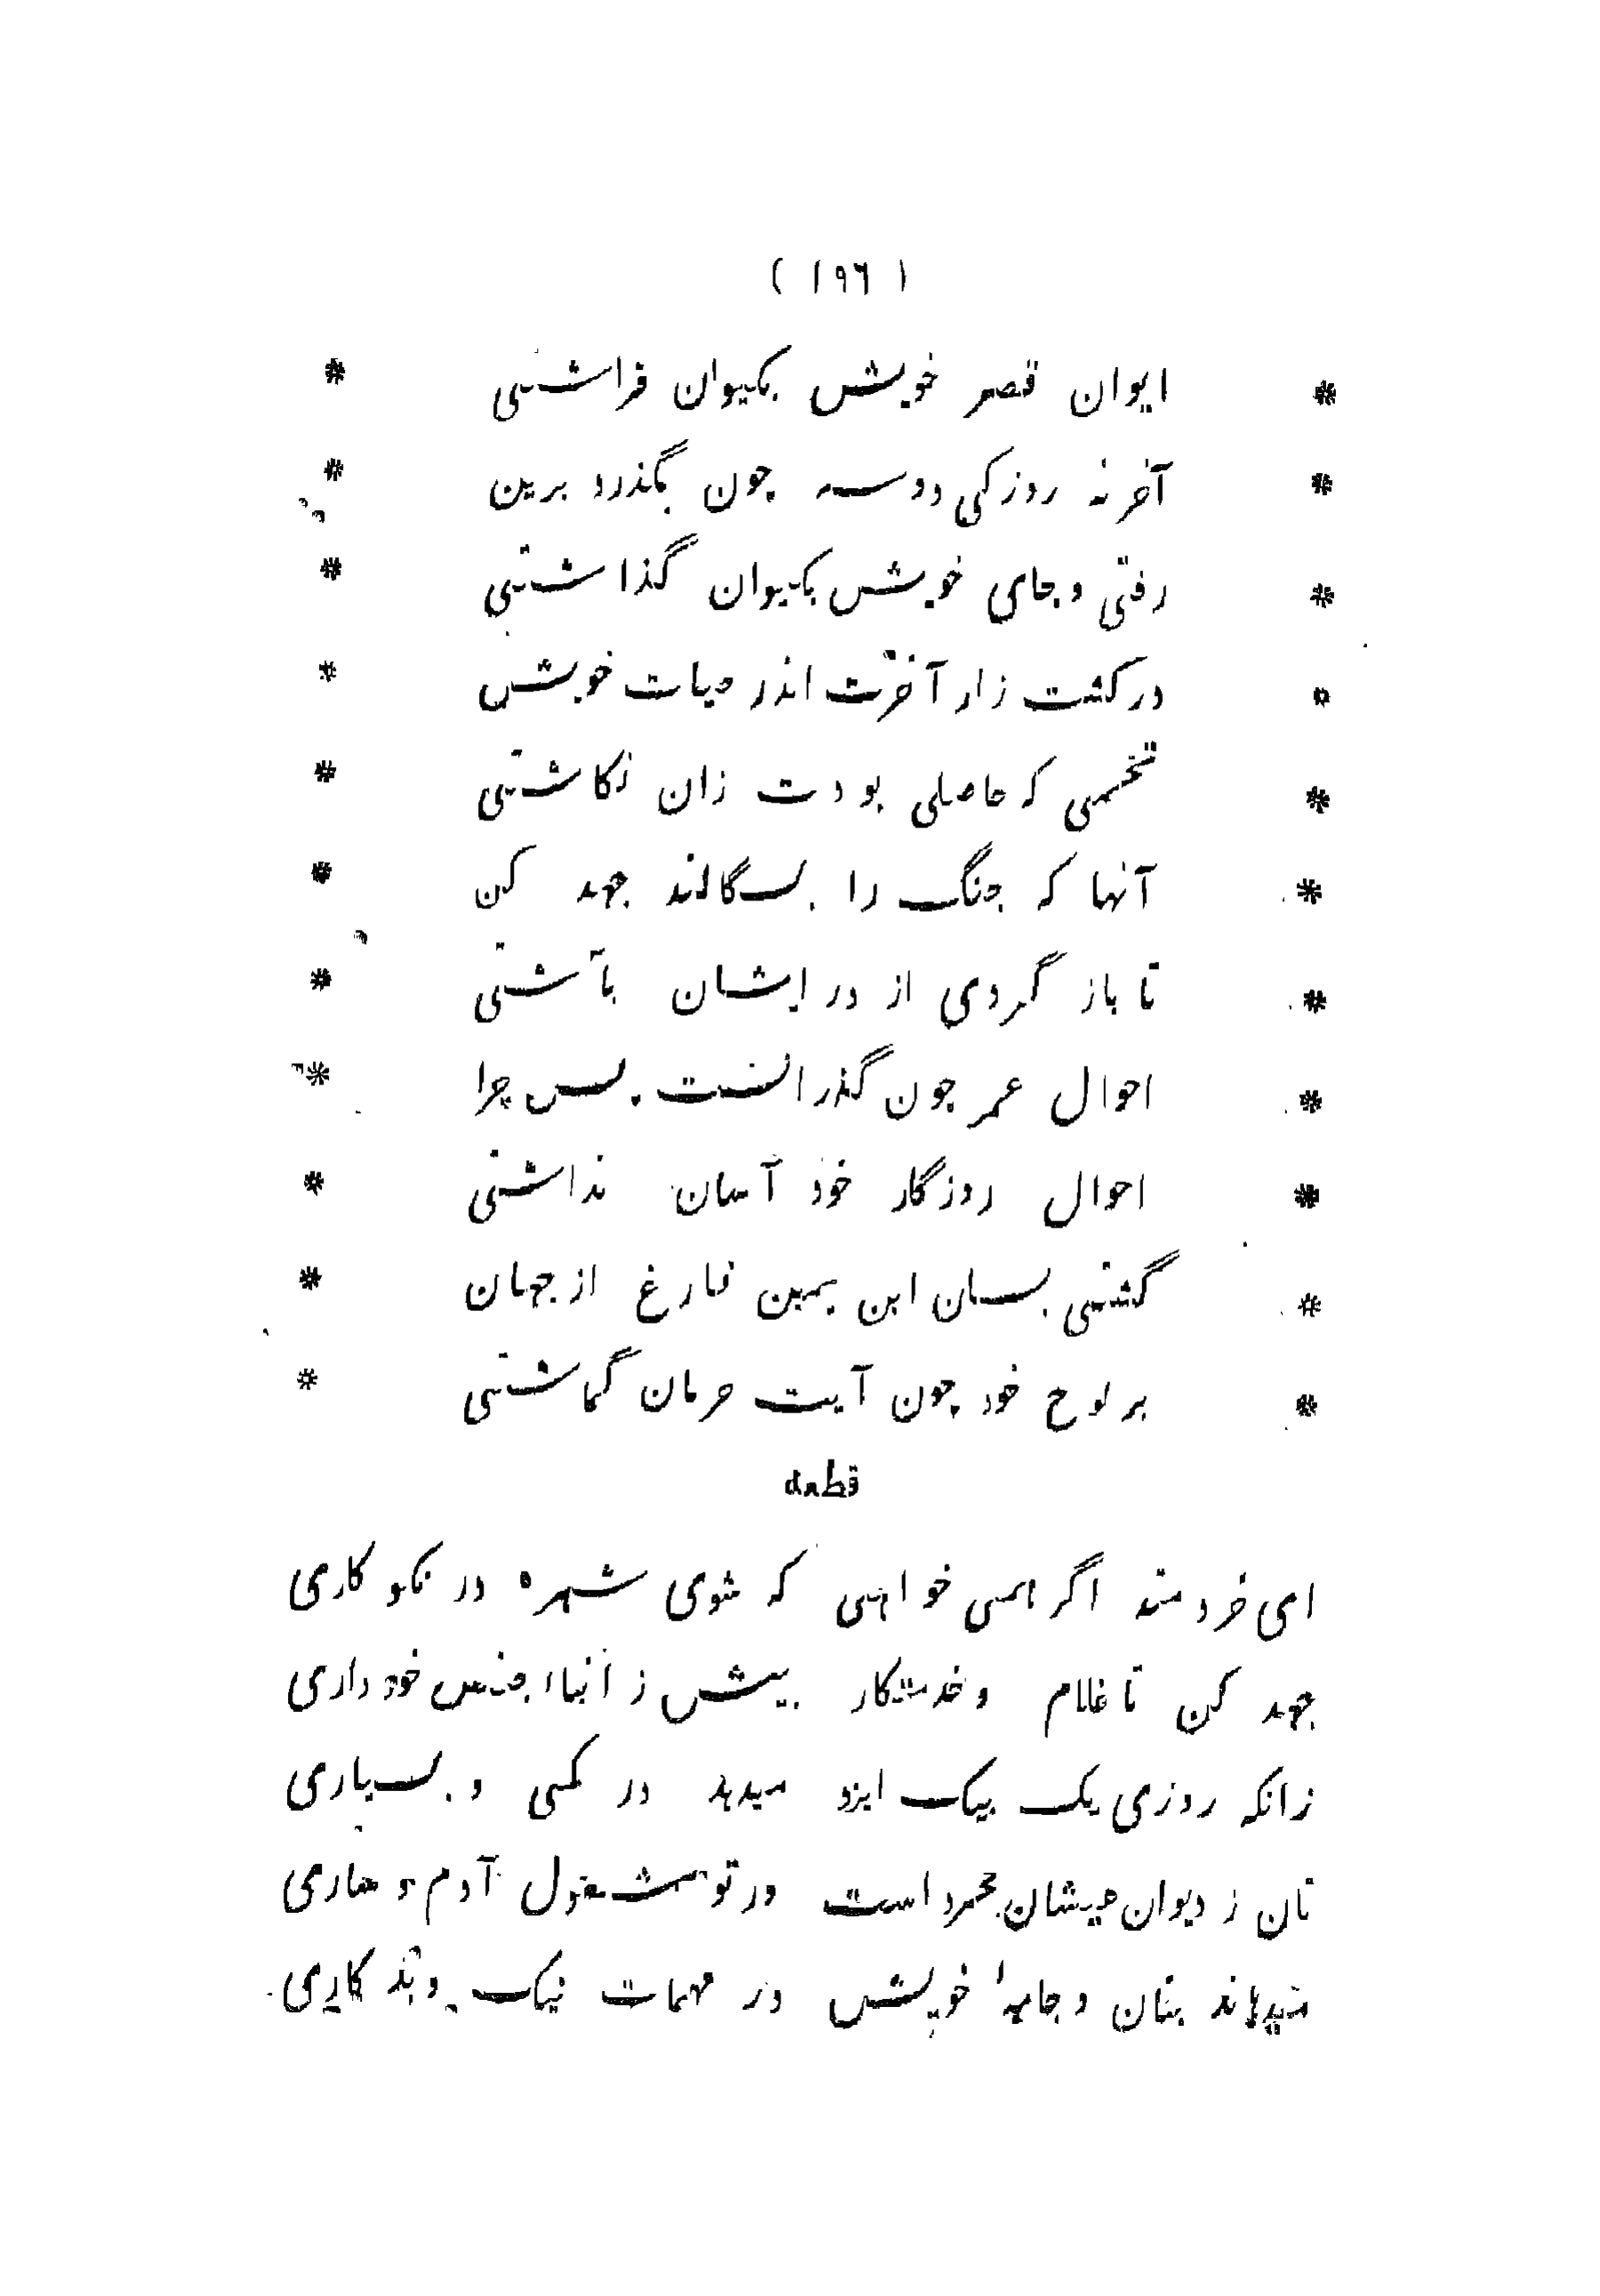 ( ۱۹۶ )
* ایوان قصر خویش بکیوان فراشتی *
* آخر نه روزکی دوسه چون بگذرد برین *
* رفتی و جای خویش بکیوان گذاشتی *
* در کشت زار آخرت اندر حیات خویش *
* تخمی که حاصلی بودت زان نکاشتی *
* آنها که جنگ را بسگالند جهد کن *
* تا باز گردی از در ایشان بآشتی *
* احوال عمر چون گذرانست پس چرا *
* احوال روزگار خود آسان نداشتی *
* گشتی بسان ابن یمین فارغ از جهان *
* بر لوح خود چون آیت حرمان گماشتی *
قطعه
ای خردمند اگر همی خواهی که شوی شهره در نکو کاری
جهد کن تا غلام و خدمتکار بیش ز ابناء جنس خود داری
زانکه روزی یک بیک ایزد میدهد در کمی و بسیاری
نان ز دیوان عیشان مجرد است ور تو مشغول آدم و
بنان و جامهٔ خویش در مهمات نیک و بد کاری